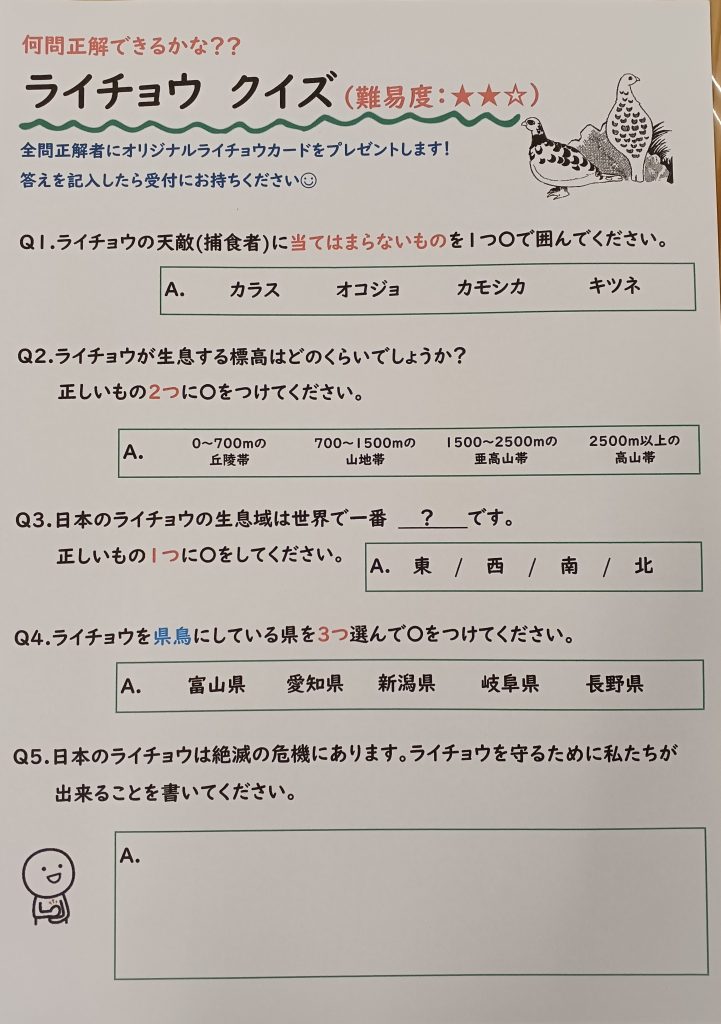 何問正解できるかな??
ライチョウ クイズ(難易度:★★☆)
全問正解者にオリジナルライチョウカードをプレゼントします!
答えを記入したら受付にお持ちください☺
Q1.ライチョウの天敵(捕食者)に当てはまらないものを1つ〇で囲んでください。
A. カラス オコジョ カモシカ キツネ
Q2.ライチョウが生息する標高はどのくらいでしょうか?
正しいもの2つに〇をつけてください。
A. 0~700mの丘陵帯 700~1500mの山地帯 1500~2500mの亜高山帯 2500m以上の高山帯
Q3.日本のライチョウの生息域は世界で一番 ? です。
正しいもの1つに〇をしてください。 A. 東 / 西 / 南 / 北
Q4.ライチョウを県鳥にしている県を3つ選んで〇をつけてください。
A. 富山県 愛知県 新潟県 岐阜県 長野県
Q5.日本のライチョウは絶滅の危機にあります。ライチョウを守るために私たちが
出来ることを書いてください。
A.